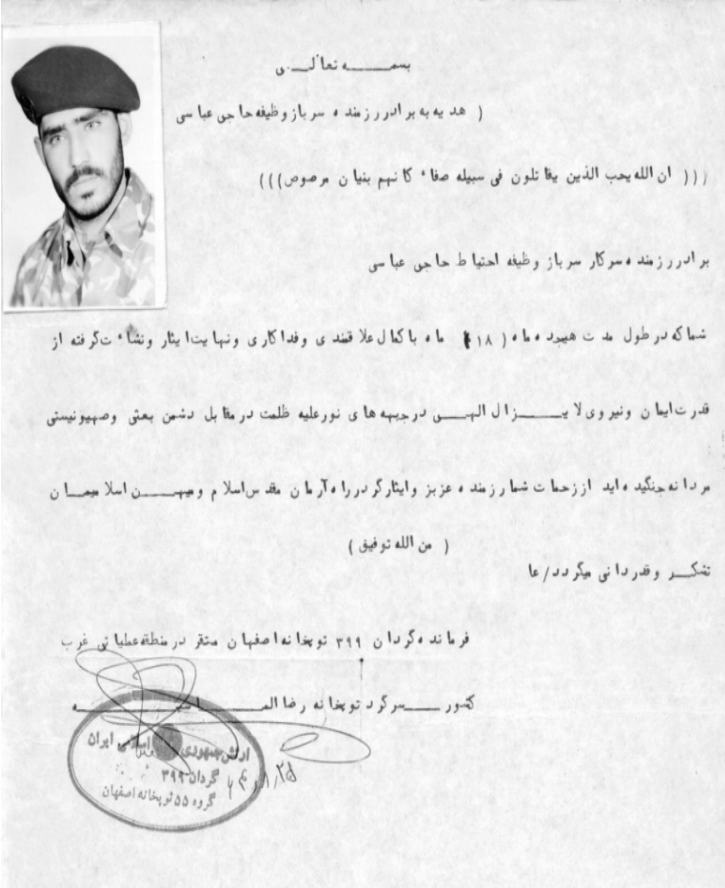 بسمه تعالی
( هدیه به برادر رزمنده سرباز وظیفه حاجی عباسی
((( ان الله یحب الذین یقاتلون فی سبیله صفاً کانهم بنیان مرصوص)))
برادر رزمنده سرکار سرباز وظیفه احتیاط حاجی عباسی
شما که در طول مدت هیجده ماه ( ۱۸ ) ماه با کمال علاقمندی و فداکاری و نهایت ایثار و نشأت گرفته از
قدرت ایمان و نیروی لایزال الهی در جبهه های نور علیه ظلمت در مقابل دشمن بعثی و صهیونیستی
مردانه جنگیده اید از زحمات شما رزمنده عزیز و ایثارگر در راه آرمان مقدس اسلام و میهن اسلامیمان
( من الله توفیق )
تشکر و قدردانی میگردد/عا
فرمانده گردان ۳۹۹ توپخانه اصفهان مستقر در منطقه عملیاتی غرب
کشور سرگرد توپخانه رضا
ارتش جمهوری اسلامی ایران
گردان ۳۹۹
گروه ۵۵ توپخانه اصفهان